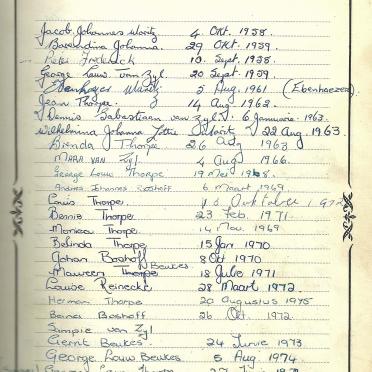 Jacob Johannes Moritz 4 Okt. 1958.
Barendina Johanna. 29 Okt. 1959.
Peter Frederick 10 Sept. 1958.
George Louw. van Zyl. 20 Sept. 1959.
Ebenhaezer Moritz 5 Aug. 1961 (Ebenhaezer)
Jean Thorpe. 14 Aug. 1962.
Dennis Sabastiaan van Zyl. 6 Januarie. 1963.
Wilhelmina Johanna 22 Aug. 1963.
Brenda Thorpe 26 Aug 1963
Mara van Zyl. 4 Aug 1966.
George Louw Thorpe 19 Mei 1968.
Andrea Johannes Boshoff 6 Maart 1969.
Louis Thorpe. Oktober
Dennis Thorpe. 23 Feb. 1971.
Monica Thorpe. 14 Nov. 1969
Belinda Thorpe 15 Jan 1970
Johan Boshoff 8 Okt 1970
Maureen Thorpe N Beukes. 18 Julie 1971
Louise Reinecke 28 Maart 1972.
Herman Thorpe 20 Augustus 1975
Boshoff 26 Okt. 1972.
van Zyl
Gerrit Beukes. 24 Junie 1973
George Louw Beukes. 5 Aug. 1974.